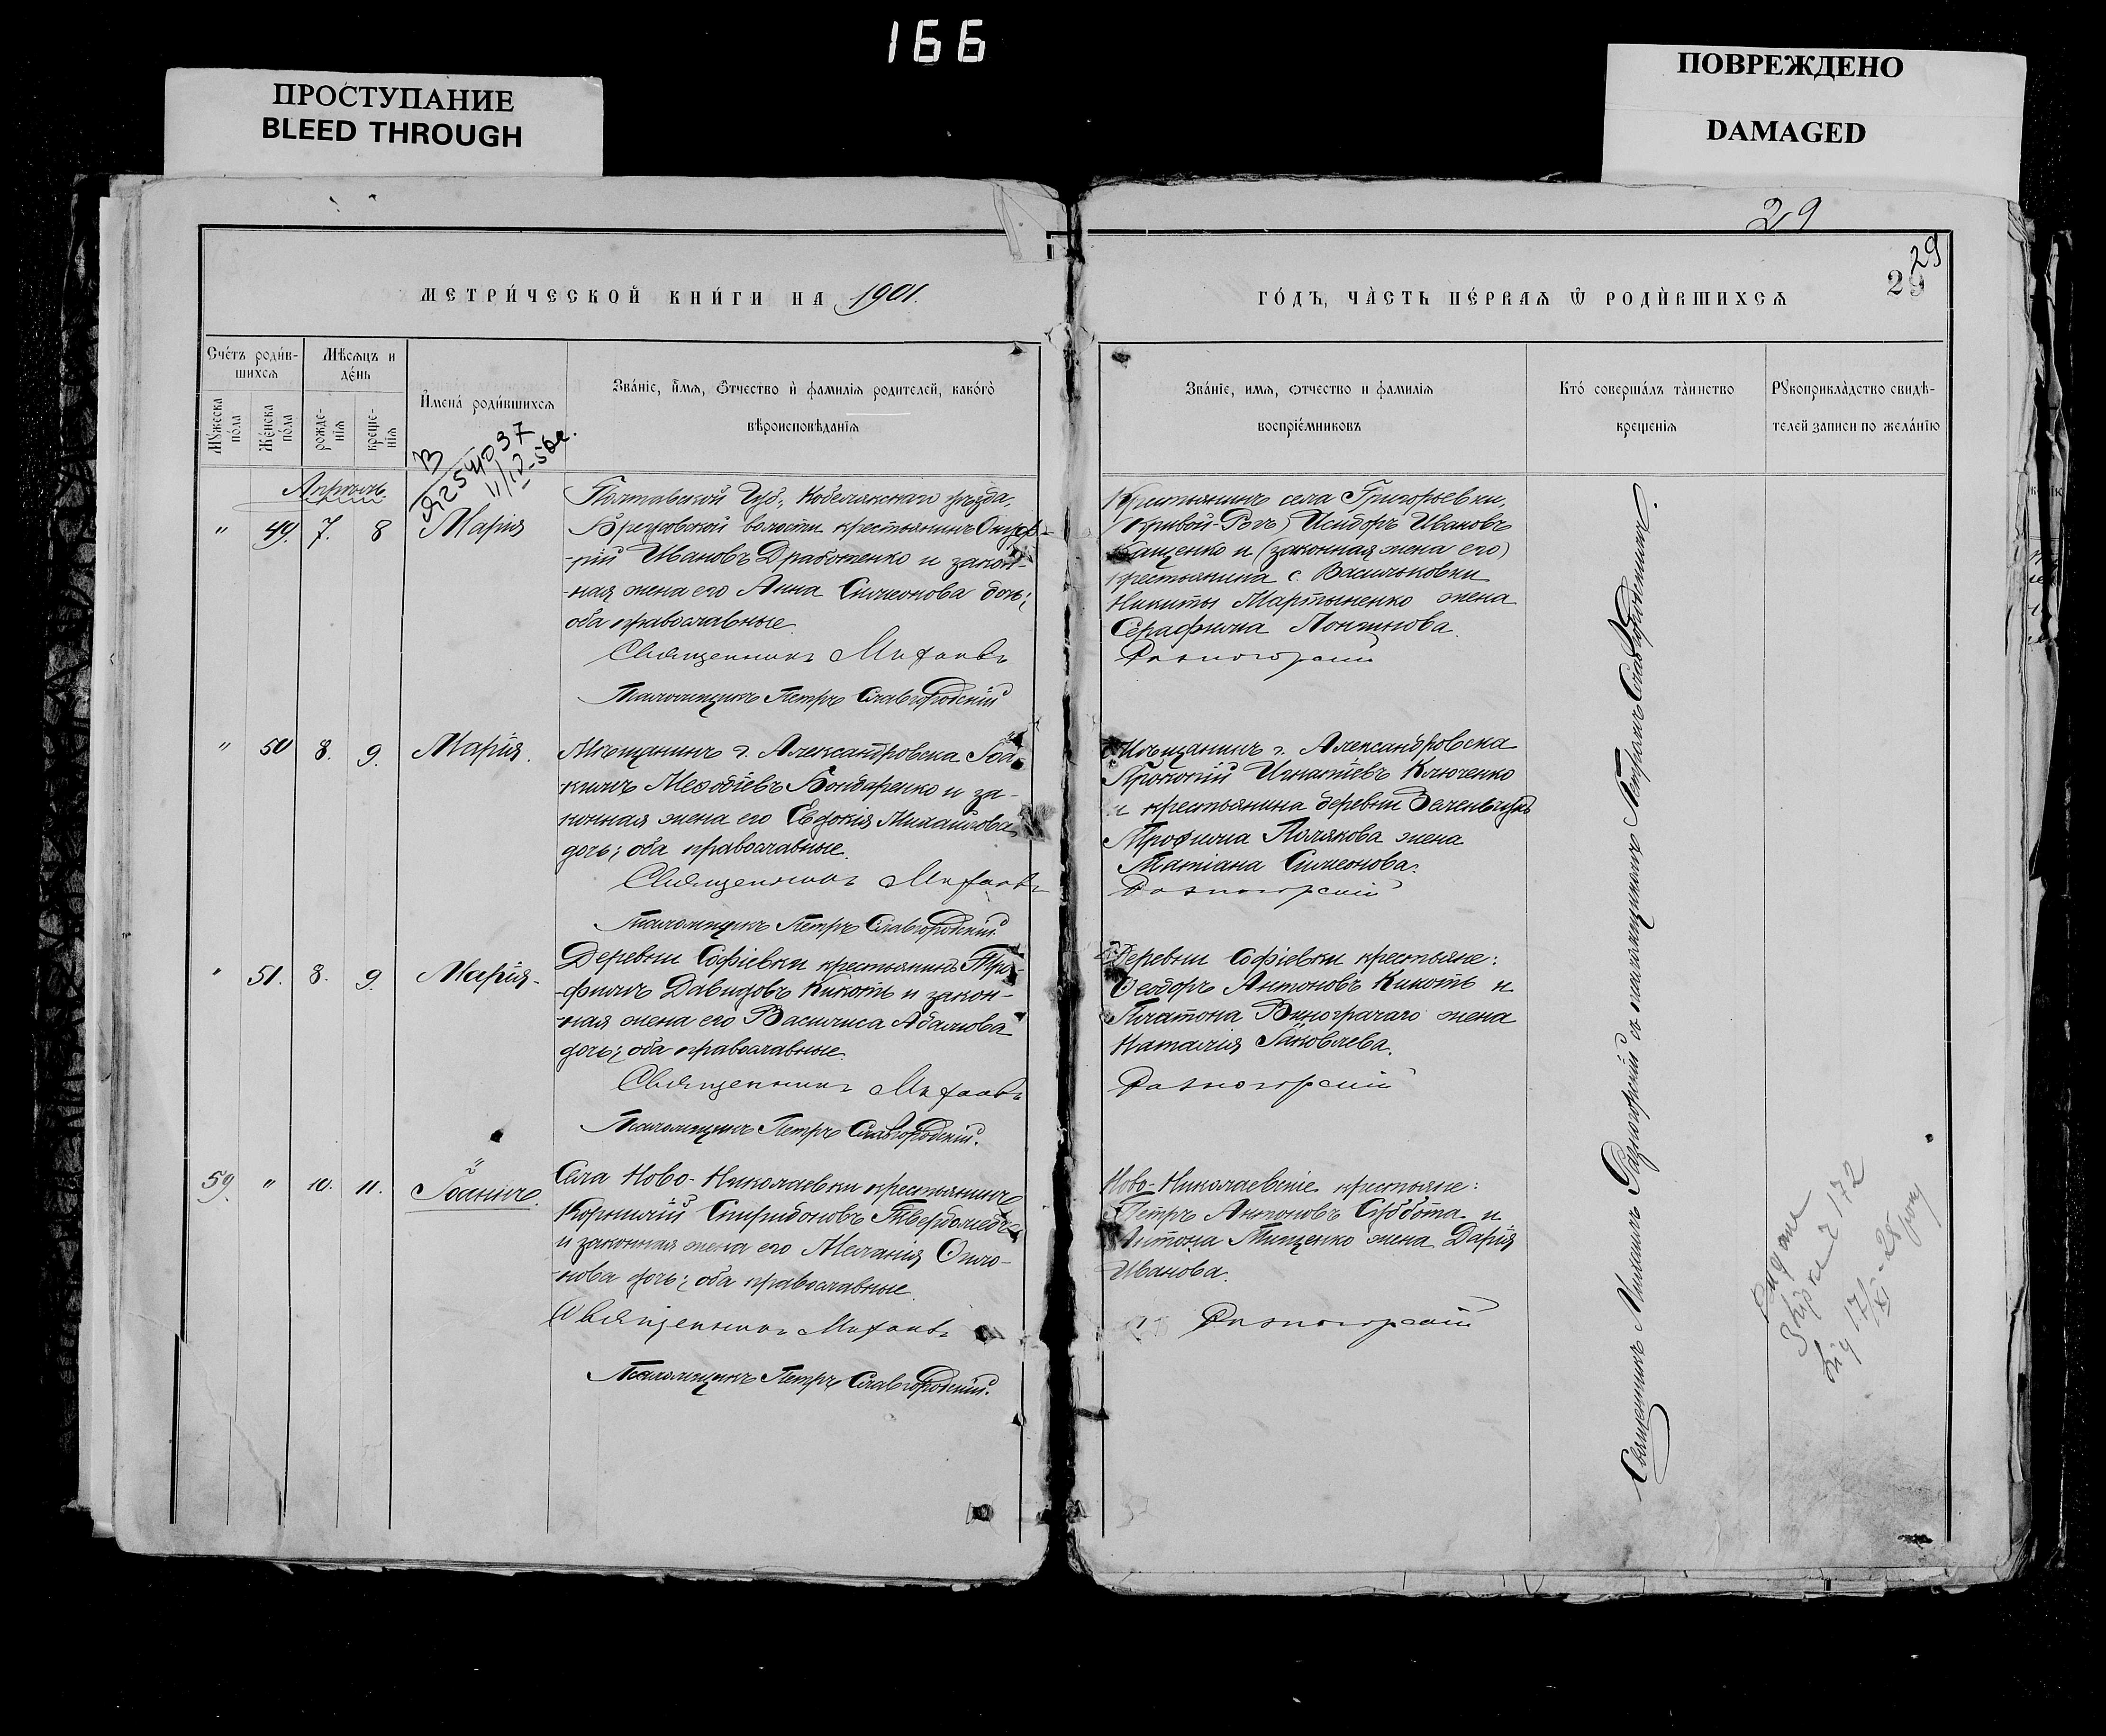 166
ПРОСТУПАНИЕ
BLEED THROUGH
ПОВРЕЖДЕНО
DAMAGED
29
29
29
МЕТРИ́ЧЕСКОЙ КНИ́ГИ НА 1901.
ГО́ДЪ, ЧА̀СТЬ ПЕ́РВАѦ Ѿ РОДИ́ВШИХСѦ
Счётъ роди́в-
шихсѧ
Мѣсѧцъ и
де́нь
Мꙋ́жеска
по́ла
Же́нска
по́ла
рожде-
нїѧ
креще-
нїѧ
И҆мена̀ роди́вшихсѧ
Зва́нїе, и҆́мѧ, ѻ҆́тчество и҆ фамилїѧ родителей, како́гѡ
вѣроисповѣ́данїѧ
Зва́нїе, имѧ, ѻтчество и фамилїѧ
воспрїе́мниковъ
Кто́ соверша́лъ та́инство
крещенїѧ
Рꙋкоприкла́дство свидѣ-
телей записи по жела́нїю
Апрель
" 49. 7. 8 Марія
Полтавской Губ., Кобелякскаго уѣзда,
волости крестьянинъ
-рій Ивановъ и закон-
-ная жена его Анна Симеонова дочь;
оба православные.
Священникъ Михаилъ
Псаломщикъ Петръ Славгородскій
Крестьянинъ села Григорьевки,
(Кривой-Рогъ) Исидоръ Ивановъ
и (законная жена его)
крестьянина с. Васильковки
Никиты Мартыненко жена
Серафима Лонгинова.
Разногорскій
" 50 8. 9. Марія.
Мѣщанинъ г. Александровска Іоа-
кимъ Меѳодіевъ Бондаренко и за-
конная жена его Евдокія Михайлова
дочь; оба православные.
Священникъ Михаилъ
Псаломщикъ Петръ Славгородскій.
Мѣщанинъ г. Александровска
Прокопій Игнатіевъ Ключенко
и крестьянина деревни
Трофима Полякова жена
Татіана Симеонова.
Разногорскій
" 51. 8. 9. Марія-
Деревни Софіевки крестьянинъ Тро-
-фимъ Давидовъ Кикоть и закон-
-ная жена его Василиса
дочь; оба православные.
Священникъ Михаилъ
Псаломщикъ Петръ Славгородскій.
Деревни Софіевки крестьяне:
Ѳеодоръ Антоновъ Кикоть и
Платона жена
Наталія Яковлева.
Разногорскій
59. " 10. 11. Іоаннъ.
Села Ново-Николаевки крестьянинъ
Корнилій Спиридоновъ
и законная жена его Меланія
-нова дочь; оба православные.
Священникъ Михаилъ
Псаломщикъ Петръ Славгородскій.
Ново-Николаевскіе крестьяне:
Петръ Антоновъ Субота и
Антона Тищенко жена Дарія
Иванова.
Разногорскій
Священникъ Михаилъ Разногорскій съ псаломщикомъ Петромъ Славгородскимъ.